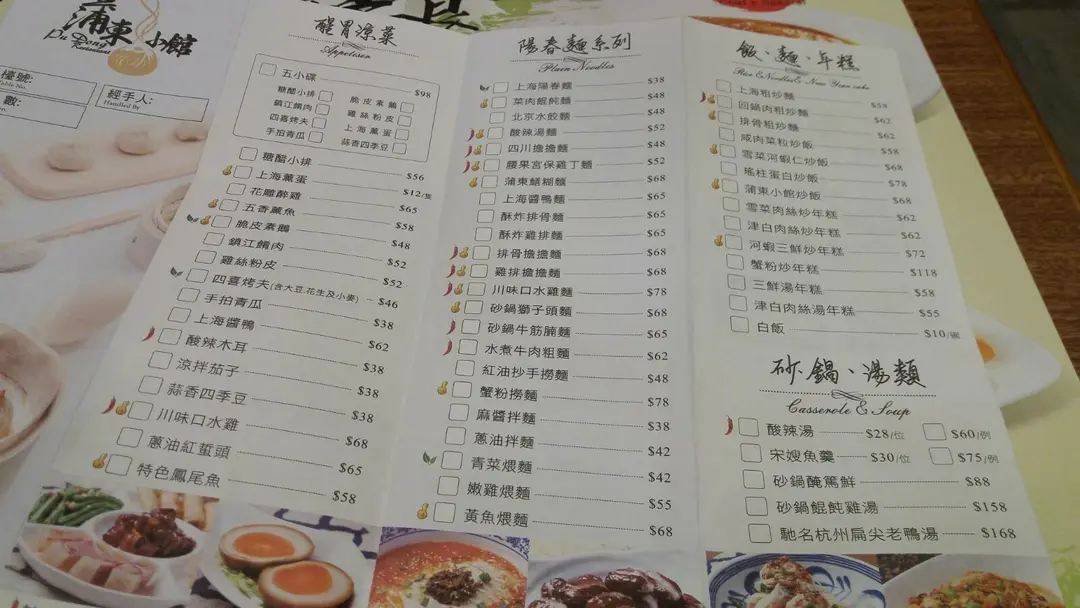 蒲東小館
Pu Dong
Restaurant
檯號:
Table No.
數:
經手人:
Handled By
醒胃涼菜
Appetisers
五小碟 $98
糖醋小排
脆皮素鵝
鎮江餚肉
雞絲粉皮
四喜烤夫
上海薰蛋
手拍青瓜
蒜香四季豆
糖醋小排 $56
上海薰蛋 $12/隻
花雕醉雞 $65
五香薰魚 $58
脆皮素鵝 $48
鎮江餚肉 $52
雞絲粉皮 $52
四喜烤夫(含大豆.花生及小麥) $46
手拍青瓜 $38
上海醬鴨 $62
酸辣木耳 $38
涼拌茄子 $38
蒜香四季豆 $38
川味口水雞 $68
蔥油紅蜇頭 $65
特色鳳尾魚 $58
陽春麵系列
Plain Noodles
上海陽春麵 $38
菜肉餛飩麵 $48
北京水餃麵 $48
酸辣湯麵 $52
四川擔擔麵 $48
腰果宮保雞丁麵 $52
蒲東鱔糊麵 $68
上海醬鴨麵 $65
酥炸排骨麵 $65
酥炸雞排麵 $65
排骨擔擔麵 $68
雞排擔擔麵 $68
川味口水雞麵 $78
砂鍋獅子頭麵 $68
砂鍋牛筋腩麵 $65
水煮牛肉粗麵 $62
紅油抄手撈麵 $48
蟹粉撈麵 $78
麻醬拌麵 $38
蔥油拌麵 $42
青菜煨麵 $42
嫩雞煨麵 $55
黃魚煨麵 $68
飯、麵、年糕
Rice & Noodles & New Year cake
上海粗炒麵 $58
回鍋肉粗炒麵 $62
排骨粗炒麵 $62
咸肉菜粒炒飯 $58
雪菜河蝦仁炒飯 $68
瑤柱蛋白炒飯 $78
蒲東小館炒飯 $68
雪菜肉絲炒年糕 $62
津白肉絲炒年糕 $62
河蝦三鮮炒年糕 $72
蟹粉炒年糕 $118
三鮮湯年糕 $58
津白肉絲湯年糕 $55
白飯 $10/碗
砂鍋、湯類
Casserole & Soup
酸辣湯 $28/位 $60/例
宋嫂魚羹 $30/位 $75/例
砂鍋醃篤鮮 $88
砂鍋餛飩雞湯 $158
馳名杭州扁尖老鴨湯 $168